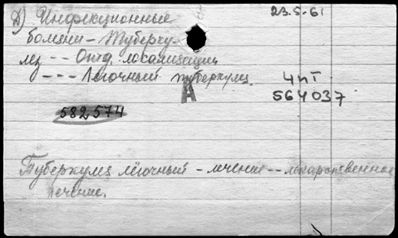 А) Инфекционные
23.5-61
болезни - Туберку-
лез -- Отд. локализации
" --- Лёгочный туберкулез.
А
ЧПТ
564037
582574
Туберкулез лёгочный - лечение -- лекарственное
лечение.